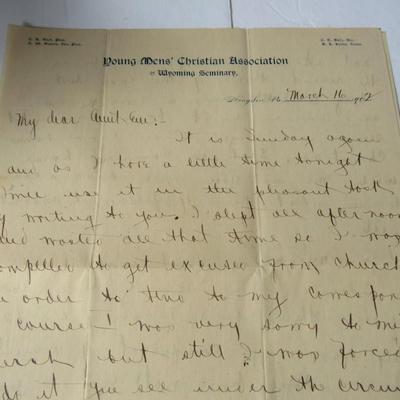 Young Mens' Christian Association
Wyoming Seminary,
Kingston, Pa. March 16 1902
My dear Aunt Em:-
It is Sunday again
and as I have a little time tonight
I will use it in the pleasant task
of writing to you. I slept all afternoon
and wasted all that time so I was
compelled to get excused from church
in order to tend to my correspon
course I was very sorry to mi
church but still I was forced
do it you see under the circum